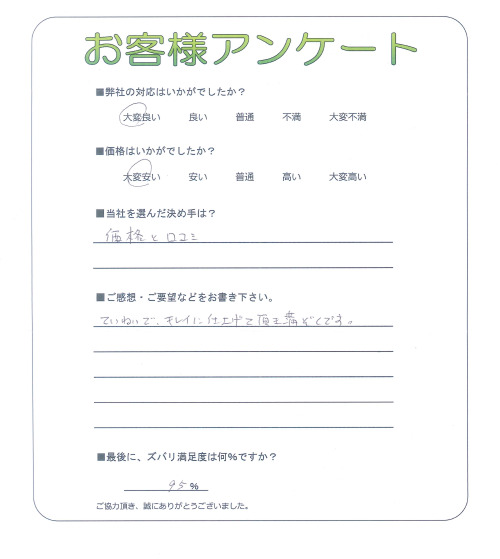 お客様アンケート
■弊社の対応はいかがでしたか？
大変良い 良い 普通 不満 大変不満
■価格はいかがでしたか？
大変安い 安い 普通 高い 大変高い
■当社を選んだ決め手は？
価格と口コミ
■ご感想・ご要望などをお書き下さい。
ていねいで、キレイに仕上げて頂き満ぞくです。
■最後に、ズバリ満足度は何%ですか？
95 %
ご協力頂き、誠にありがとうございました。